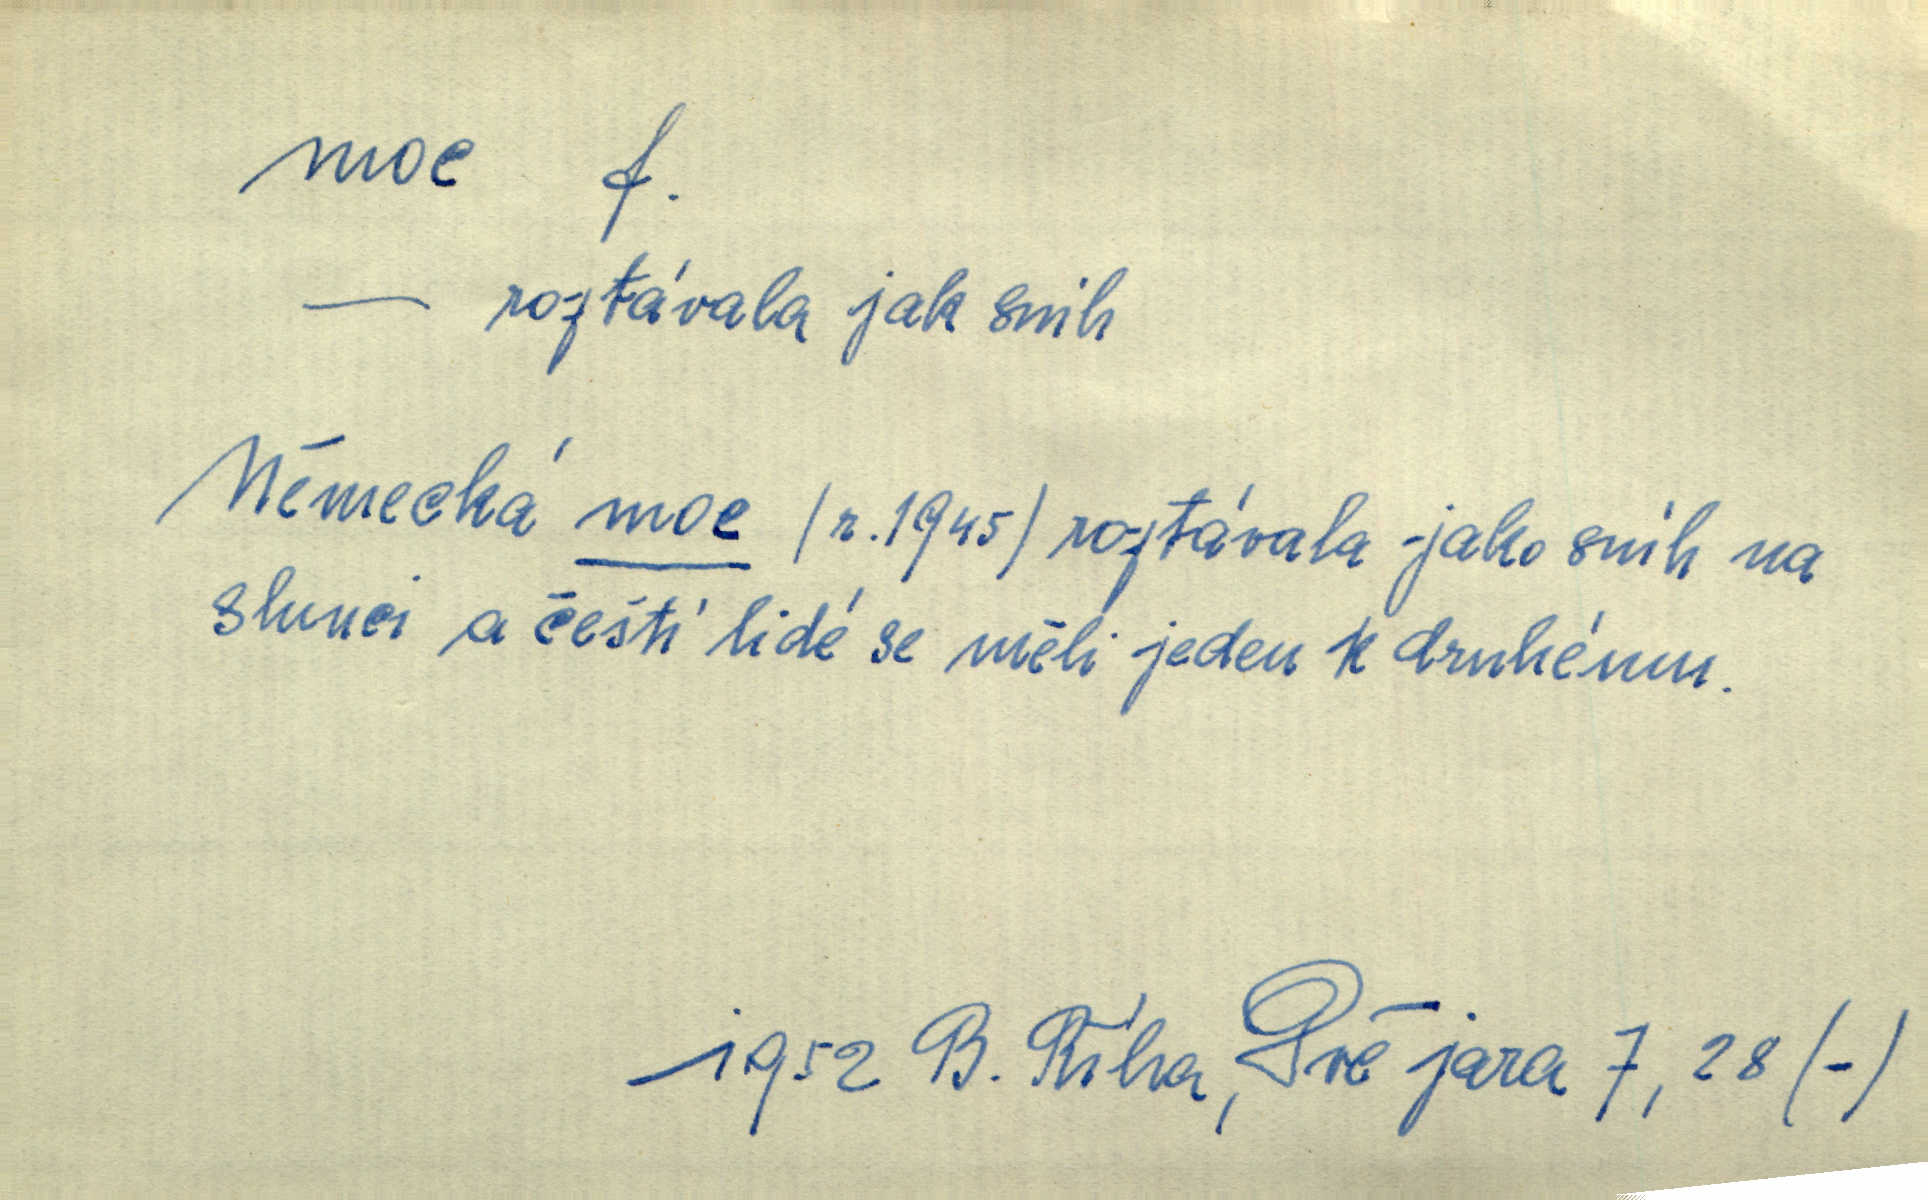 moc f.
— roztávala jak sníh
Německá moc (r. 1945) roztávala jako sníh na
slunci a čeští lidé se měli jeden k druhému.
1952 B. Říha, Dvě jara 7, 28 (-)